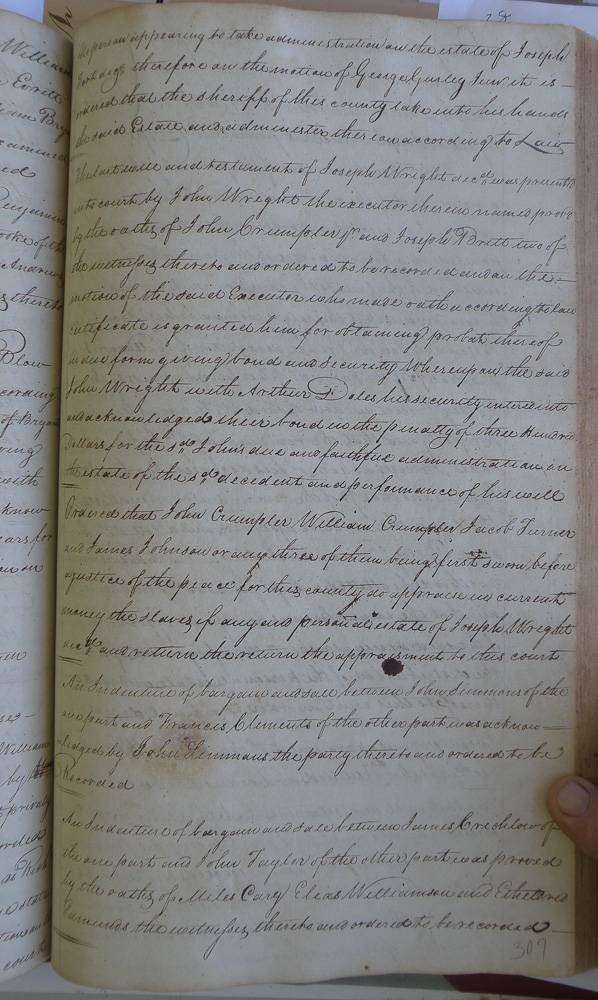 No person appearing to take administration on the estate of Joseph
therefore on the motion of George Gurley Junr it is
ordered that the sheriff of this county take into his hands
the said Estate and administer thereon according to Law
The last will and testament of Joseph Wright decd. was presented
into court by John Wright the executor therein named proved
by the oaths of John Crumpler Jr and Joseph Britt two of
the witnesses thereto and ordered to be recorded and on the
motion of the said Executor who made oath according to law
certificate is granted him for obtaining probat thereof
in due form giving bond and security Whereupon the said
John Wright with Arthur Doles his security intered into
and acknowledged their bond in the penalty of three Hundred
Dollars for the sd. John's due and faithful administration on
the estate of the sd. decedent and performance of his will
Ordered that John Crumpler William Crumpler Jacob Turner
and James Johnson or any three of them being first sworn before
a justice of the peace for this county do appraise in current
money the slaves if any and personal estate of Joseph Wright
decd. and return the return the appraisment to this court
An Indenture of bargain and sale between John Simmons of the
one part and Francis Clements of the other part was acknow
ledged by John Simmons the party thereto and ordered to be
Recorded
An Indenture of bargain and sale between James Crichlow of
the one part and John Taylor of the other part was proved
by the oaths of Miles Cary Eleas Williamson and Etheldred
Edmunds the witnesses thereto and ordered to be recorded
307